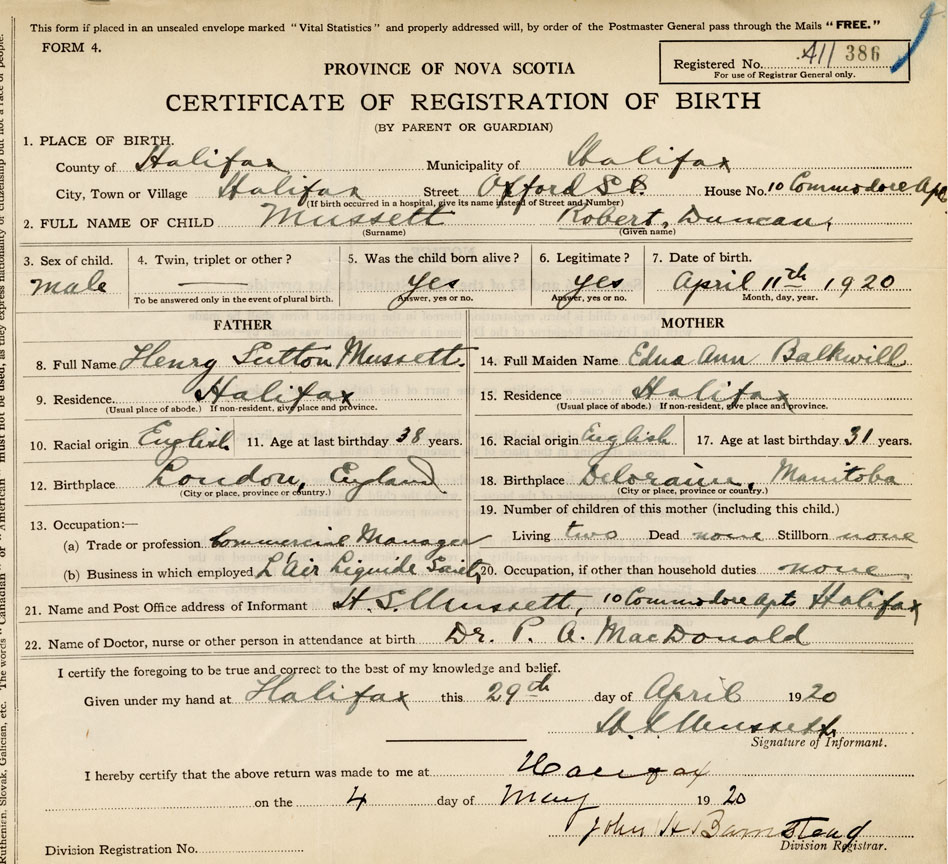 This form if placed in an unsealed envelope marked "Vital Statistics" and properly addressed will, by order of the Postmaster General pass through the Mails "FREE."
FORM 4.
Registered No. 411 386
For use of Registrar General only.
PROVINCE OF NOVA SCOTIA
CERTIFICATE OF REGISTRATION OF BIRTH
(BY PARENT OR GUARDIAN)
1. PLACE OF BIRTH.
County of Halifax Municipality of Halifax
City, Town or Village Halifax Street Oxford St House No. 10 Commodore Apt
(If birth occurred in a hospital, give its name instead of Street and Number)
2. FULL NAME OF CHILD Mussett Robert, Duncan,
(Surname) (Given name)
3. Sex of child. 4. Twin, triplet or other? 5. Was the child born alive? 6. Legitimate? 7. Date of birth.
male yes yes April 11th 1920
To be answered only in the event of plural birth. Answer, yes or no. Answer, yes or no. Month, day, year.
FATHER MOTHER
8. Full Name Henry Sutton Mussett. 14. Full Maiden Name Edna Ann Balkwill
9. Residence Halifax 15. Residence Halifax
(Usual place of abode.) If non-resident, give place and province. (Usual place of abode.) If non-resident, give place and province.
10. Racial origin English 11. Age at last birthday 38 years. 16. Racial origin English 17. Age at last birthday 31 years.
12. Birthplace London, England 18. Birthplace Deloraine, Manitoba
(City or place, province or country.) (City or place, province or country.)
19. Number of children of this mother (including this child.)
13. Occupation:—
(a) Trade or profession Commercial Manager Living two Dead none Stillborn none
(b) Business in which employed L'Air Liquide Society 20. Occupation, if other than household duties none
21. Name and Post Office address of Informant H. S. Mussett, 10 Commodore Apts Halifax
22. Name of Doctor, nurse or other person in attendance at birth Dr. P. A. MacDonald
I certify the foregoing to be true and correct to the best of my knowledge and belief.
Given under my hand at Halifax this 29th day of April 1920
H. S. Mussett.
Signature of Informant.
I hereby certify that the above return was made to me at Halifax
on the 4 day of May 1920
John H Barnstead
Division Registrar.
Division Registration No.